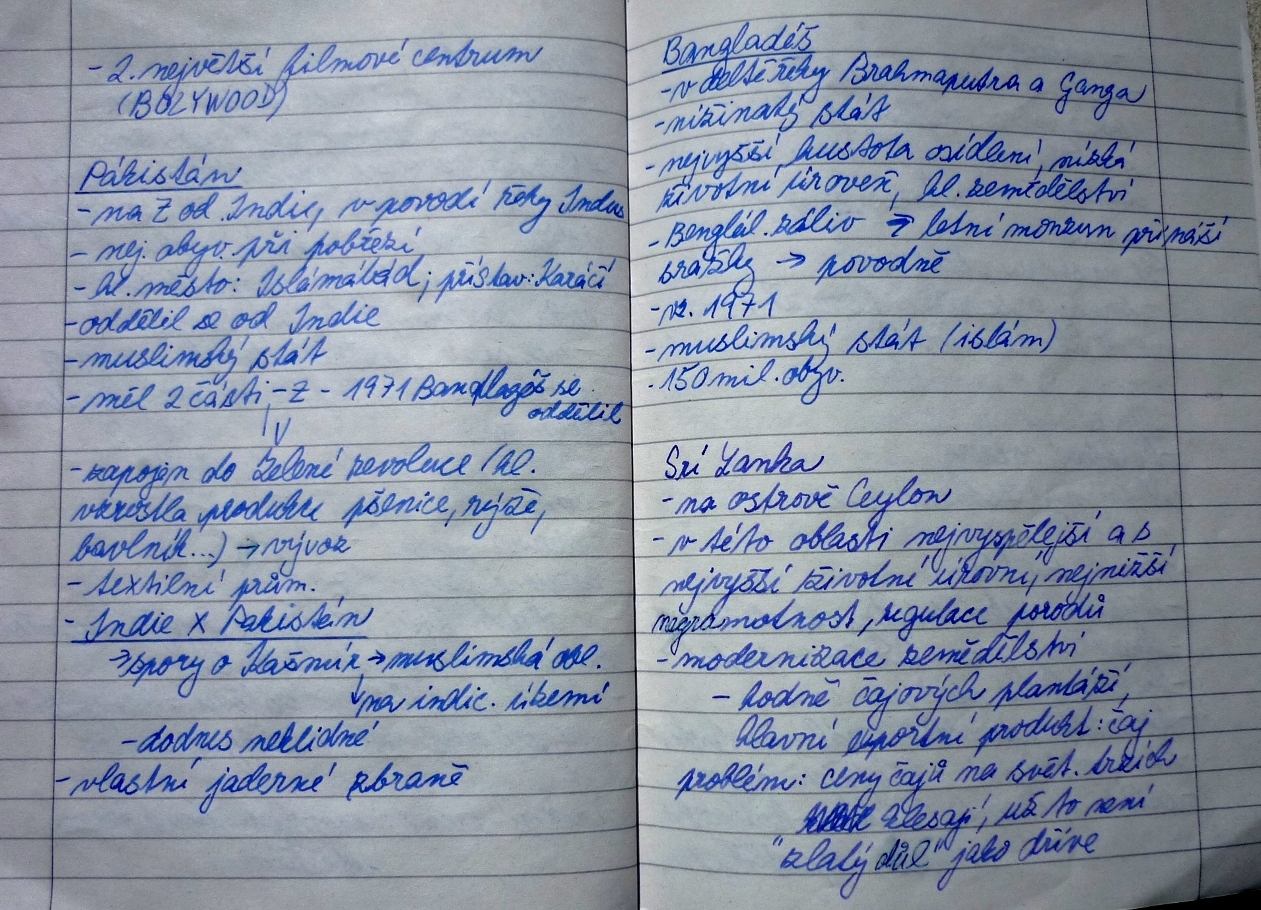 - 2. největší filmové centrum
(BOLYWOOD)
Pákistán
- na Z od Indie, v povodí řeky Indus
- nej. obyv. při pobřeží
- hl. město: Islámábád; přístav: Karáčí
- oddělil se od Indie
- muslimský stát
- měl 2 části - Z - 1971 Bangladéš se
oddělil
↓ V
- zapojen do Zelené revoluce (hl.
vzrostla produkce pšenice, rýže,
bavlník...) → vývoz
- textilní prům.
- Indie X Pakistán
→ spory o Kašmír → muslimská obl.
↓ na indic. území
- dodnes neklidné
- vlastní jaderné zbraně
Bangladéš
- v deltě řeky Brahmaputra a Ganga
- nížinatý stát
- nejvyšší hustota osídlení, nízká
životní úroveň, hl. zemědělství
- Benglál. záliv → letní monzun přináší
srážky → povodně
- vz. 1971
- muslimský stát (islám)
- 150 mil. obyv.
Srí Lanka
- na ostrově Ceylon
- v této oblasti nejvyspělejší a s
nejvyšší životní úrovní, nejnižší
negramotnost, regulace porodů
- modernizace zemědělství
- hodně čajových plantáží,
hlavní exportní produkt: čaj
problém: ceny čajů na svět. trzích
klesají, už to není
"zlatý důl" jako dříve